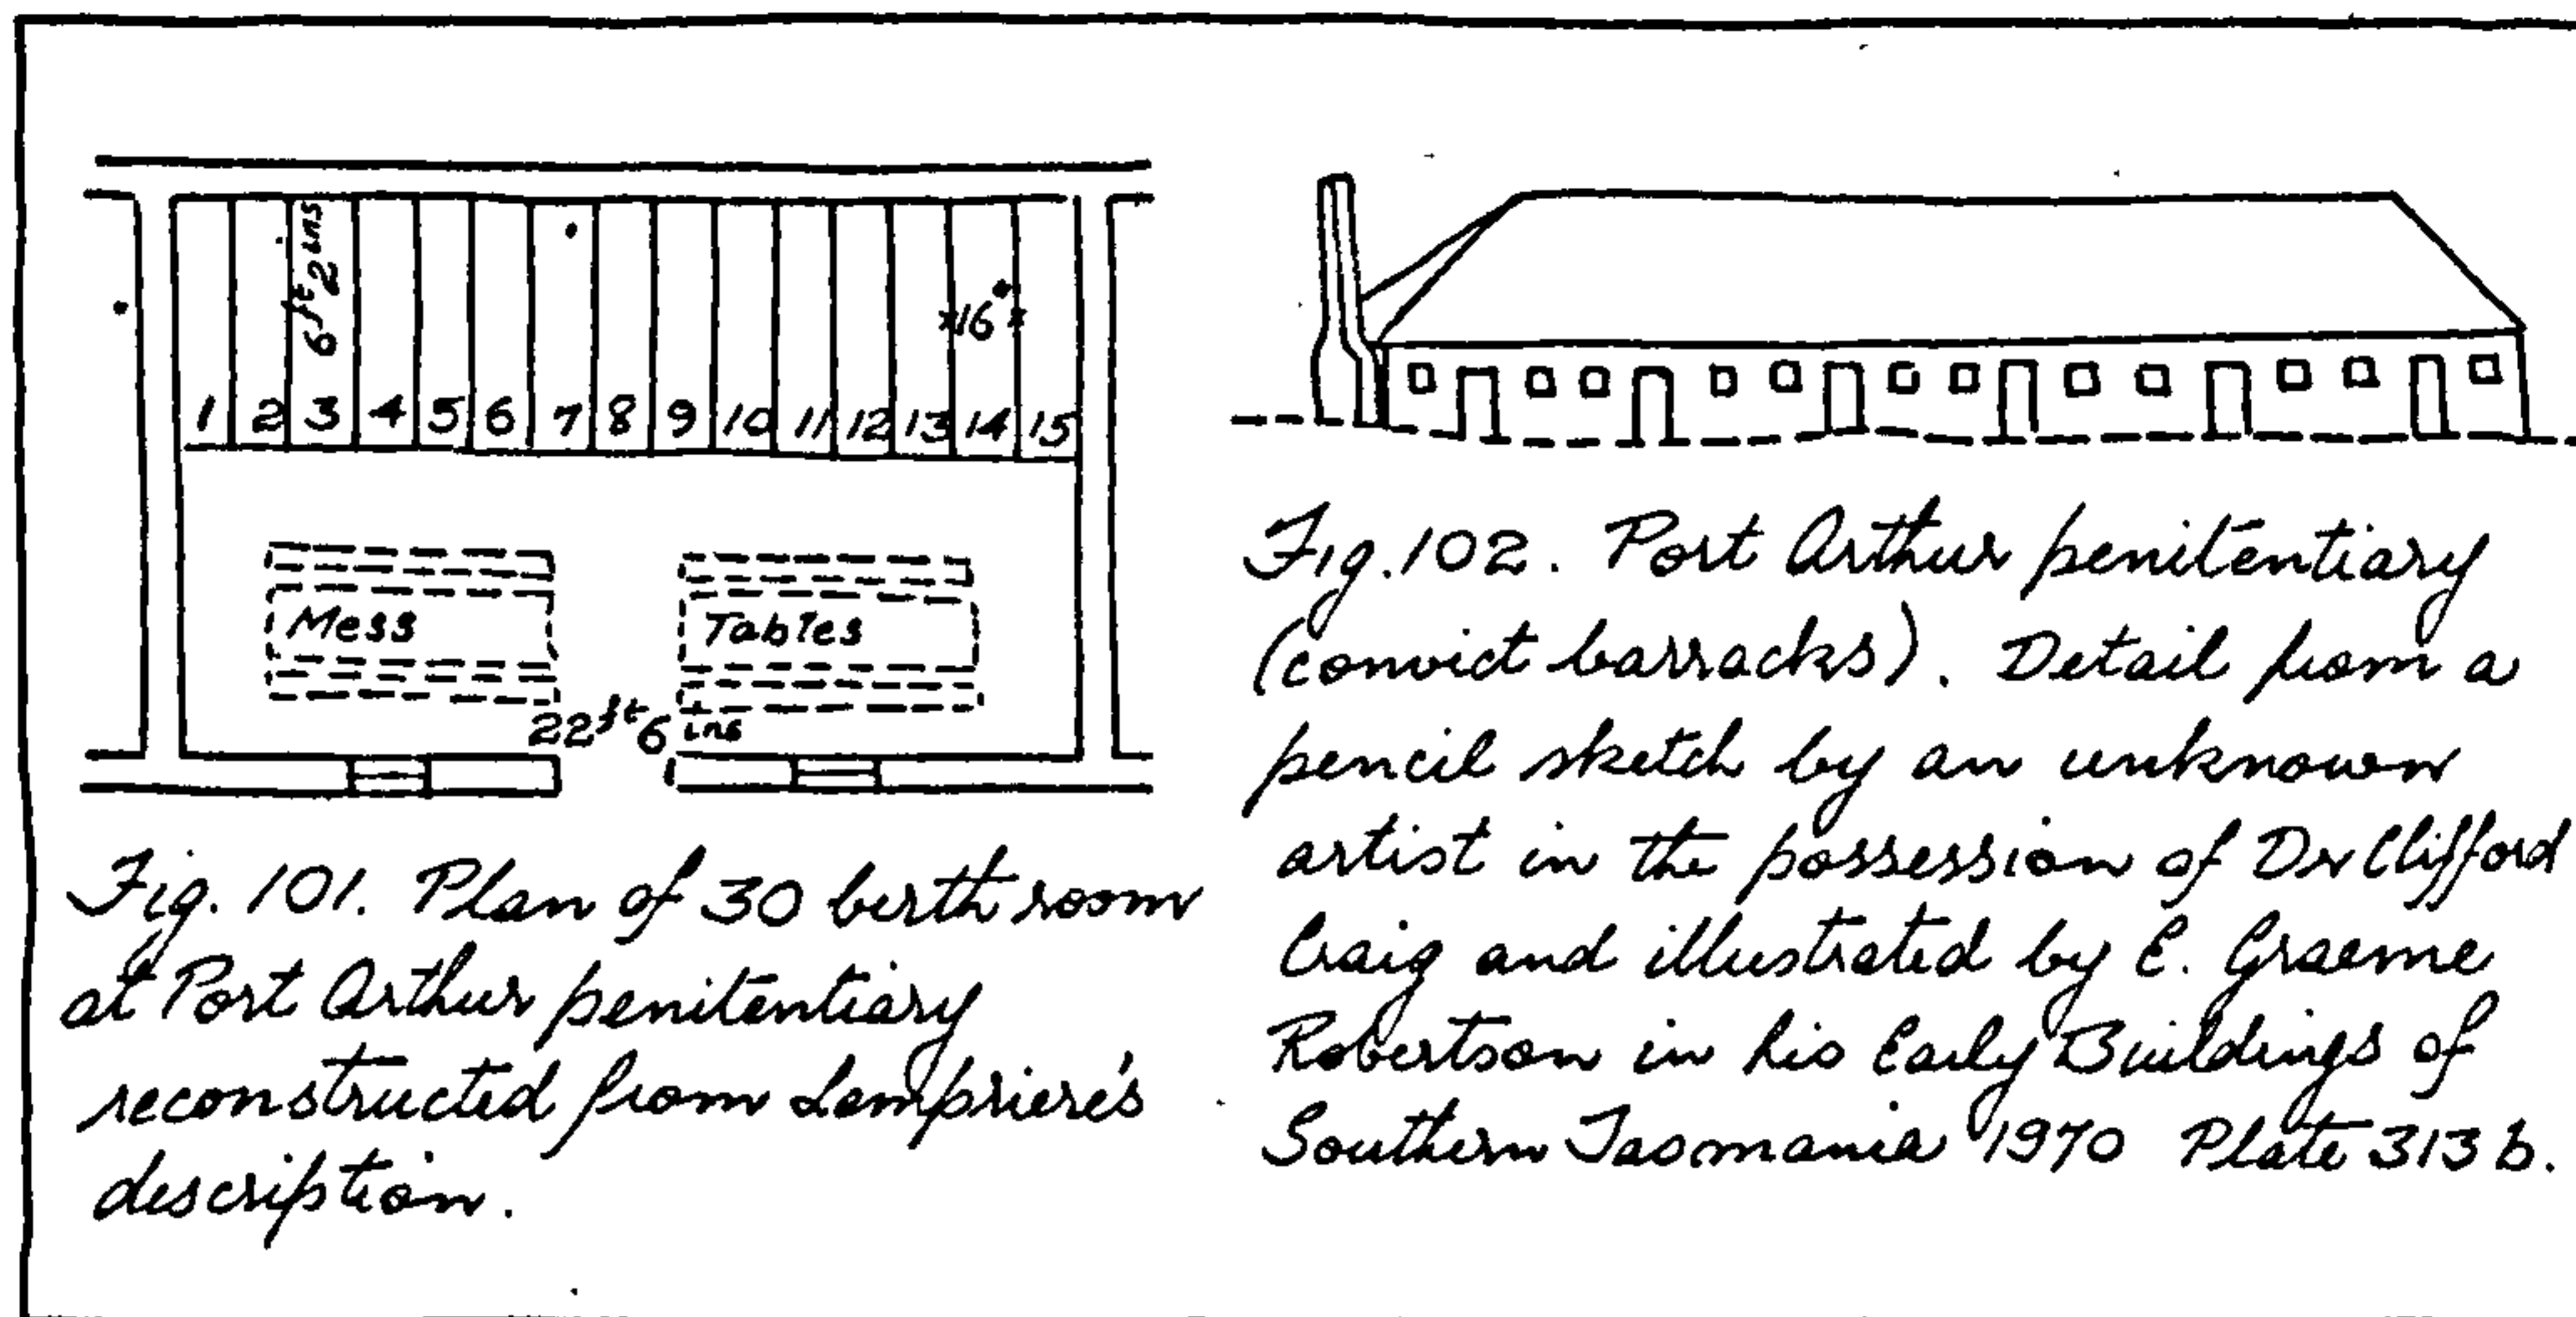 6ft 2ins
16"
1 2 3 4 5 6 7 8 9 10 11 12 13 14 15
Mess Tables
22ft 6ins
Fig. 101. Plan of 30 birth room
at Port Arthur penitentiary
reconstructed from Lempriere's
description.
Fig. 102. Port Arthur penitentiary
(convict barracks). Detail from a
pencil sketch by an unknown
artist in the possession of Dr Clifford
Craig and illustrated by E. Graeme
Robertson in his Early Buildings of
Southern Tasmania 1970 Plate 313 b.